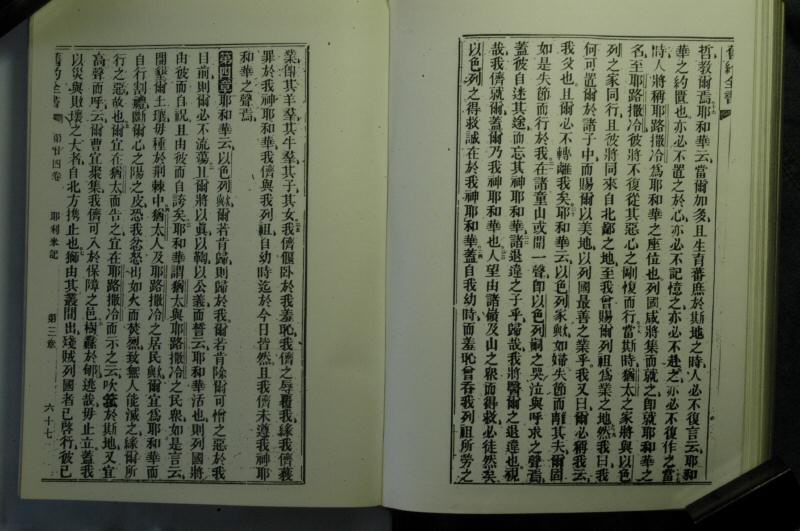 舊約全書
哲教爾焉耶和華云當爾加多且生育蕃庶於斯地之時人必不復言云耶和
華之約匱也亦必不置之於心亦必不記憶之亦必不赴之亦必不復作之當
時人將稱耶路撒冷爲耶和華之座位也列國咸將集而就之即就耶和華之
名至耶路撒冷彼將不復從其惡心之剛愎而行當斯時猶太之家將與以色
列之家同行且彼將同來自北鄙之地至我曾賜爾列祖爲業之地然我曰我
何可置爾於諸子中而賜爾以美地以列國最善之業乎我又曰爾必稱我云
我父也且爾必不轉離我矣耶和華云以色列家歟如婦失節而離其夫爾固
如是失節而行於我在諸童山或聞一聲即以色列嗣之哭泣與呼求之聲焉
蓋彼自迷其途而忘其神耶和華諸退違之子乎歸哉我將醫爾之退違也視
哉我儕就爾蓋爾乃我神耶和華也人望由諸嶺及山之衆而得救必徒然矣
以色列之得救誠在於我神耶和華蓋自我幼時而羞恥曾吞我列祖所勞之
業即其羊羣其牛羣其子其女我儕偃卧於我羞恥我儕之辱覆我緣我儕獲
罪於我神耶和華我儕與我列祖自幼時迄於今日皆然且我儕未遵我神耶
和華之聲焉
第四章耶和華云以色列歟爾若肯歸則歸於我爾若肯除爾可憎之惡於我
目前則爾必不流蕩且爾將以眞以鞫以公義而誓云耶和華活也則列國將
由彼而自祝且由彼而自誇矣耶和華謂猶太與耶路撒冷之民衆如是言云
開墾爾土壤毋種於荆棘中猶太人及耶路撒冷之居民歟爾宜爲耶和華而
自行割禮斷爾心之陽之皮恐我忿怒出如火而焚烈致無人能滅之緣爾所
行之惡故也爾宜在猶太而告之宜在耶路撒冷而示之云吹於斯地又宜
高聲而呼云爾曹宜聚集我儕可入於保障之邑樹纛於郇逃哉毋止立蓋我
以災與敗壞之大者自北方携止也獅由其叢間出殘賊列國者已啓行彼已
舊約全書 第廿四卷 耶利米記 第三章 六十七